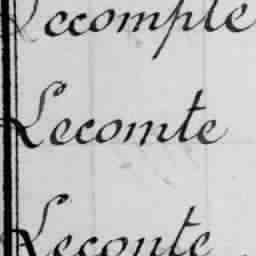 Lecompte
Lecomte
Leconte